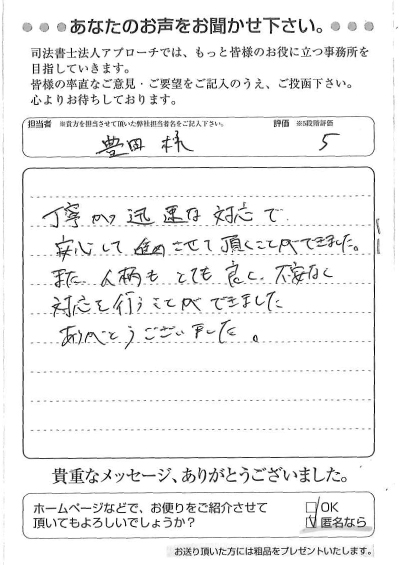 あなたのお声をお聞かせ下さい。
司法書士法人アプローチでは、もっと皆様のお役に立つ事務所を
目指していきます。
皆様の率直なご意見・ご要望をご記入のうえ、ご投函下さい。
心よりお待ちしております。
担当者 ※貴方を担当させて頂いた弊社担当者名をご記入下さい。 評価 ※5段階評価
豊田 様 5
丁寧かつ迅速な対応で
安心して進めさせて頂くことができました。
また、人柄もとても良く、不安なく
対応を行うことができました
ありがとうございました。
貴重なメッセージ、ありがとうございました。
ホームページなどで、お便りをご紹介させて
頂いてもよろしいでしょうか?
□ OK
☑ 匿名なら
お送り頂いた方には粗品をプレゼントいたします。